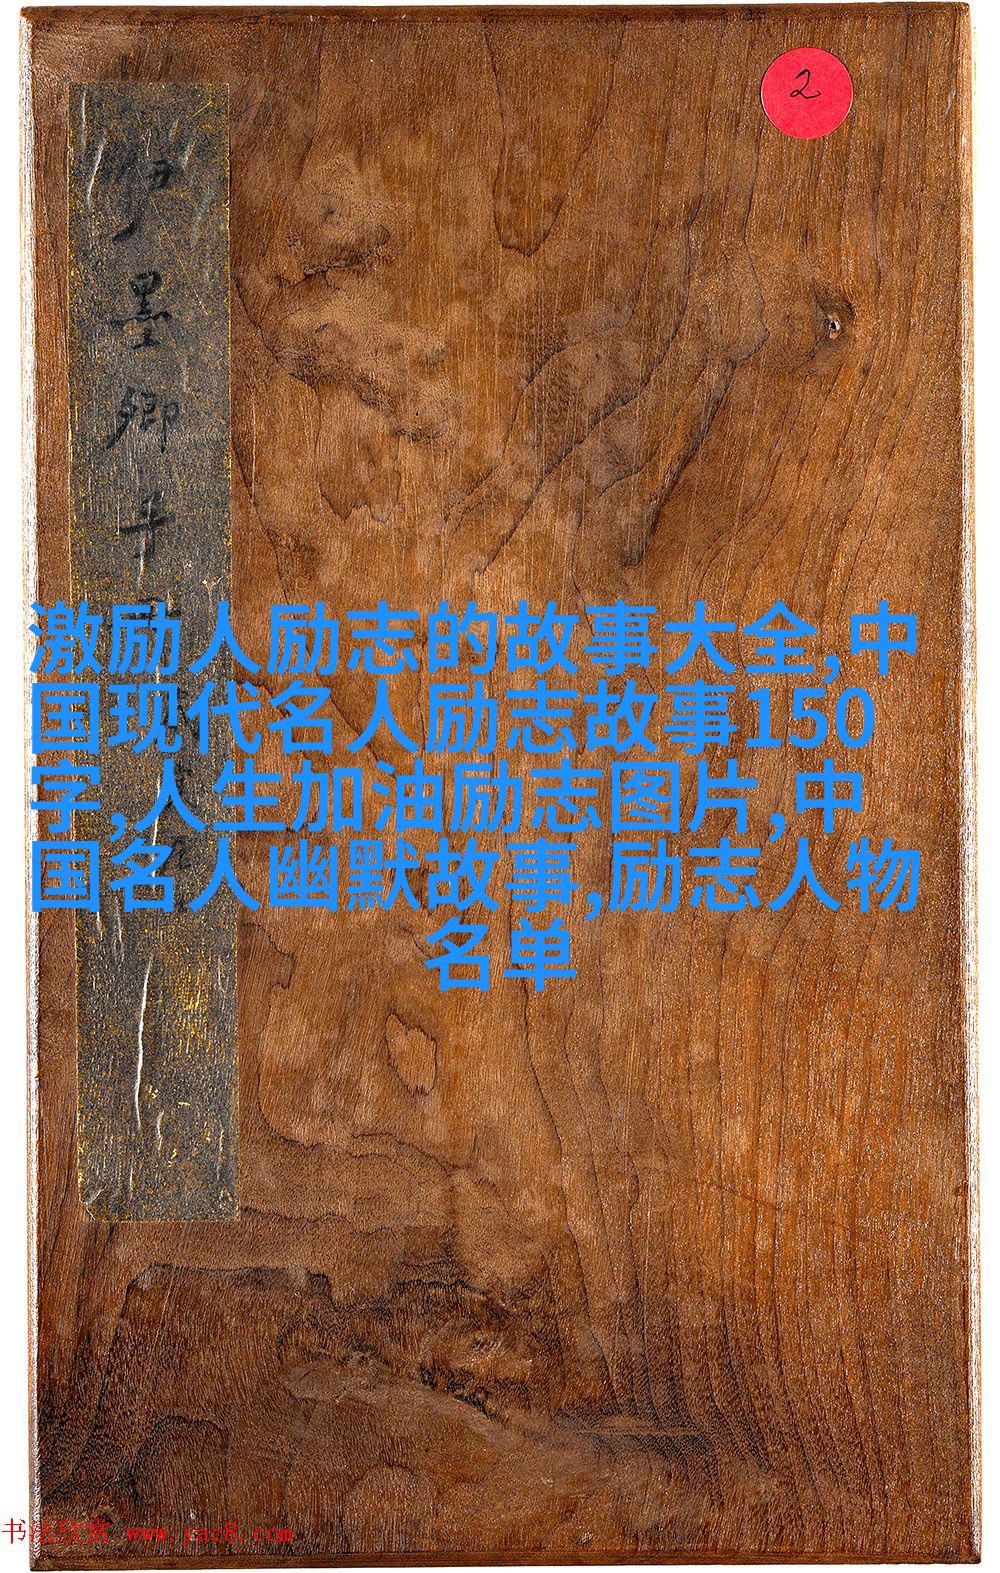 2
墨卿
激励人励志的故事大全,中
国现代名人励志故事150
字,人生加油励志图片,中
国名人幽默故事,励志人物
名单
书法欣赏 www.yac8.com